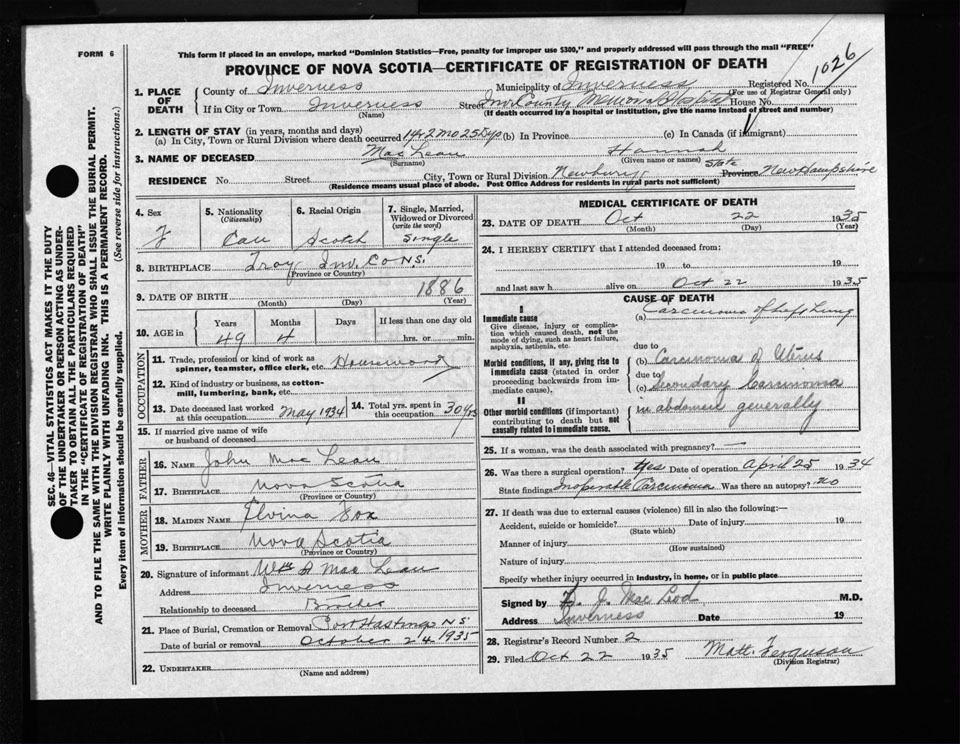 FORM 6
This form if placed in an envelope, marked "Dominion Statistics—Free, penalty for improper use $300," and properly addressed will pass through the mail "FREE"
PROVINCE OF NOVA SCOTIA—CERTIFICATE OF REGISTRATION OF DEATH
1026
SEC. 46—VITAL STATISTICS ACT MAKES IT THE DUTY
OF THE UNDERTAKER OR PERSON ACTING AS UNDER-
TAKER TO OBTAIN ALL THE PARTICULARS REQUIRED
IN THE "CERTIFICATE OF REGISTRATION OF DEATH"
AND TO FILE THE SAME WITH THE DIVISION REGISTRAR WHO SHALL ISSUE THE BURIAL PERMIT.
WRITE PLAINLY WITH UNFADING INK. THIS IS A PERMANENT RECORD.
Every item of information should be carefully supplied. (See reverse side for instructions.)
1. PLACE OF DEATH
County of Inverness Municipality of Inverness Registered No.
(For use of Registrar General only)
If in City or Town Inverness Street Inv. County Memorial Hospital House No.
(Name) (If death occurred in a hospital or institution, give the name instead of street and number)
2. LENGTH OF STAY (in years, months and days)
(a) In City, Town or Rural Division where death occurred 1 yr 2 mo 25 dys (b) In Province (c) In Canada (if immigrant)
3. NAME OF DECEASED MacLean Hannah
(Surname) (Given name or names)
RESIDENCE No. Street City, Town or Rural Division Newbury State Province New Hampshire
(Residence means usual place of abode. Post Office Address for residents in rural parts not sufficient)
4. Sex F
5. Nationality (Citizenship) Can
6. Racial Origin Scotch
7. Single, Married, Widowed or Divorced (write the word) Single
8. BIRTHPLACE Troy Inv. Co N.S.
(Province or Country)
9. DATE OF BIRTH 1886
(Month) (Day) (Year)
10. AGE in Years 49 Months 4 Days If less than one day old hrs. or min.
OCCUPATION
11. Trade, profession or kind of work as spinner, teamster, office clerk, etc. Housework
12. Kind of industry or business, as cotton-mill, lumbering, bank, etc.
13. Date deceased last worked at this occupation May 1934
14. Total yrs. spent in this occupation 30 yrs
15. If married give name of wife or husband of deceased
FATHER
16. NAME John MacLean
17. BIRTHPLACE Nova Scotia
(Province or Country)
MOTHER
18. MAIDEN NAME Elvina Fox
19. BIRTHPLACE Nova Scotia
(Province or Country)
20. Signature of informant MacLean
Address Inverness
Relationship to deceased Brother
21. Place of Burial, Cremation or Removal Port Hastings N.S.
Date of burial or removal October 24 1935
22. UNDERTAKER
(Name and address)
MEDICAL CERTIFICATE OF DEATH
23. DATE OF DEATH Oct 22 1935
(Month) (Day) (Year)
24. I HEREBY CERTIFY that I attended deceased from:
19 to 19
and last saw h alive on Oct 22 1935
CAUSE OF DEATH
I
Immediate cause
Give disease, injury or complication which caused death, not the mode of dying, such as heart failure, asphyxia, asthenia, etc.
(a) Carcinoma of Left Lung
due to
Morbid conditions, if any, giving rise to immediate cause (stated in order proceeding backwards from immediate cause).
(b) Carcinoma of Uterus
due to
(c) Secondary Carcinoma
in abdomen generally
II
Other morbid conditions (if important) contributing to death but not causally related to immediate cause.
25. If a woman, was the death associated with pregnancy? —
26. Was there a surgical operation? Yes Date of operation April 25 1934
State findings Inoperable Carcinoma Was there an autopsy? no
27. If death was due to external causes (violence) fill in also the following:—
Accident, suicide or homicide? Date of injury 19
(State which)
Manner of injury
(How sustained)
Nature of injury
Specify whether injury occurred in industry, in home, or in public place
Signed by J. MacLeod M.D.
Address Inverness Date 19
28. Registrar's Record Number 2
29. Filed Oct 22 1935 Matt Ferguson
(Division Registrar)